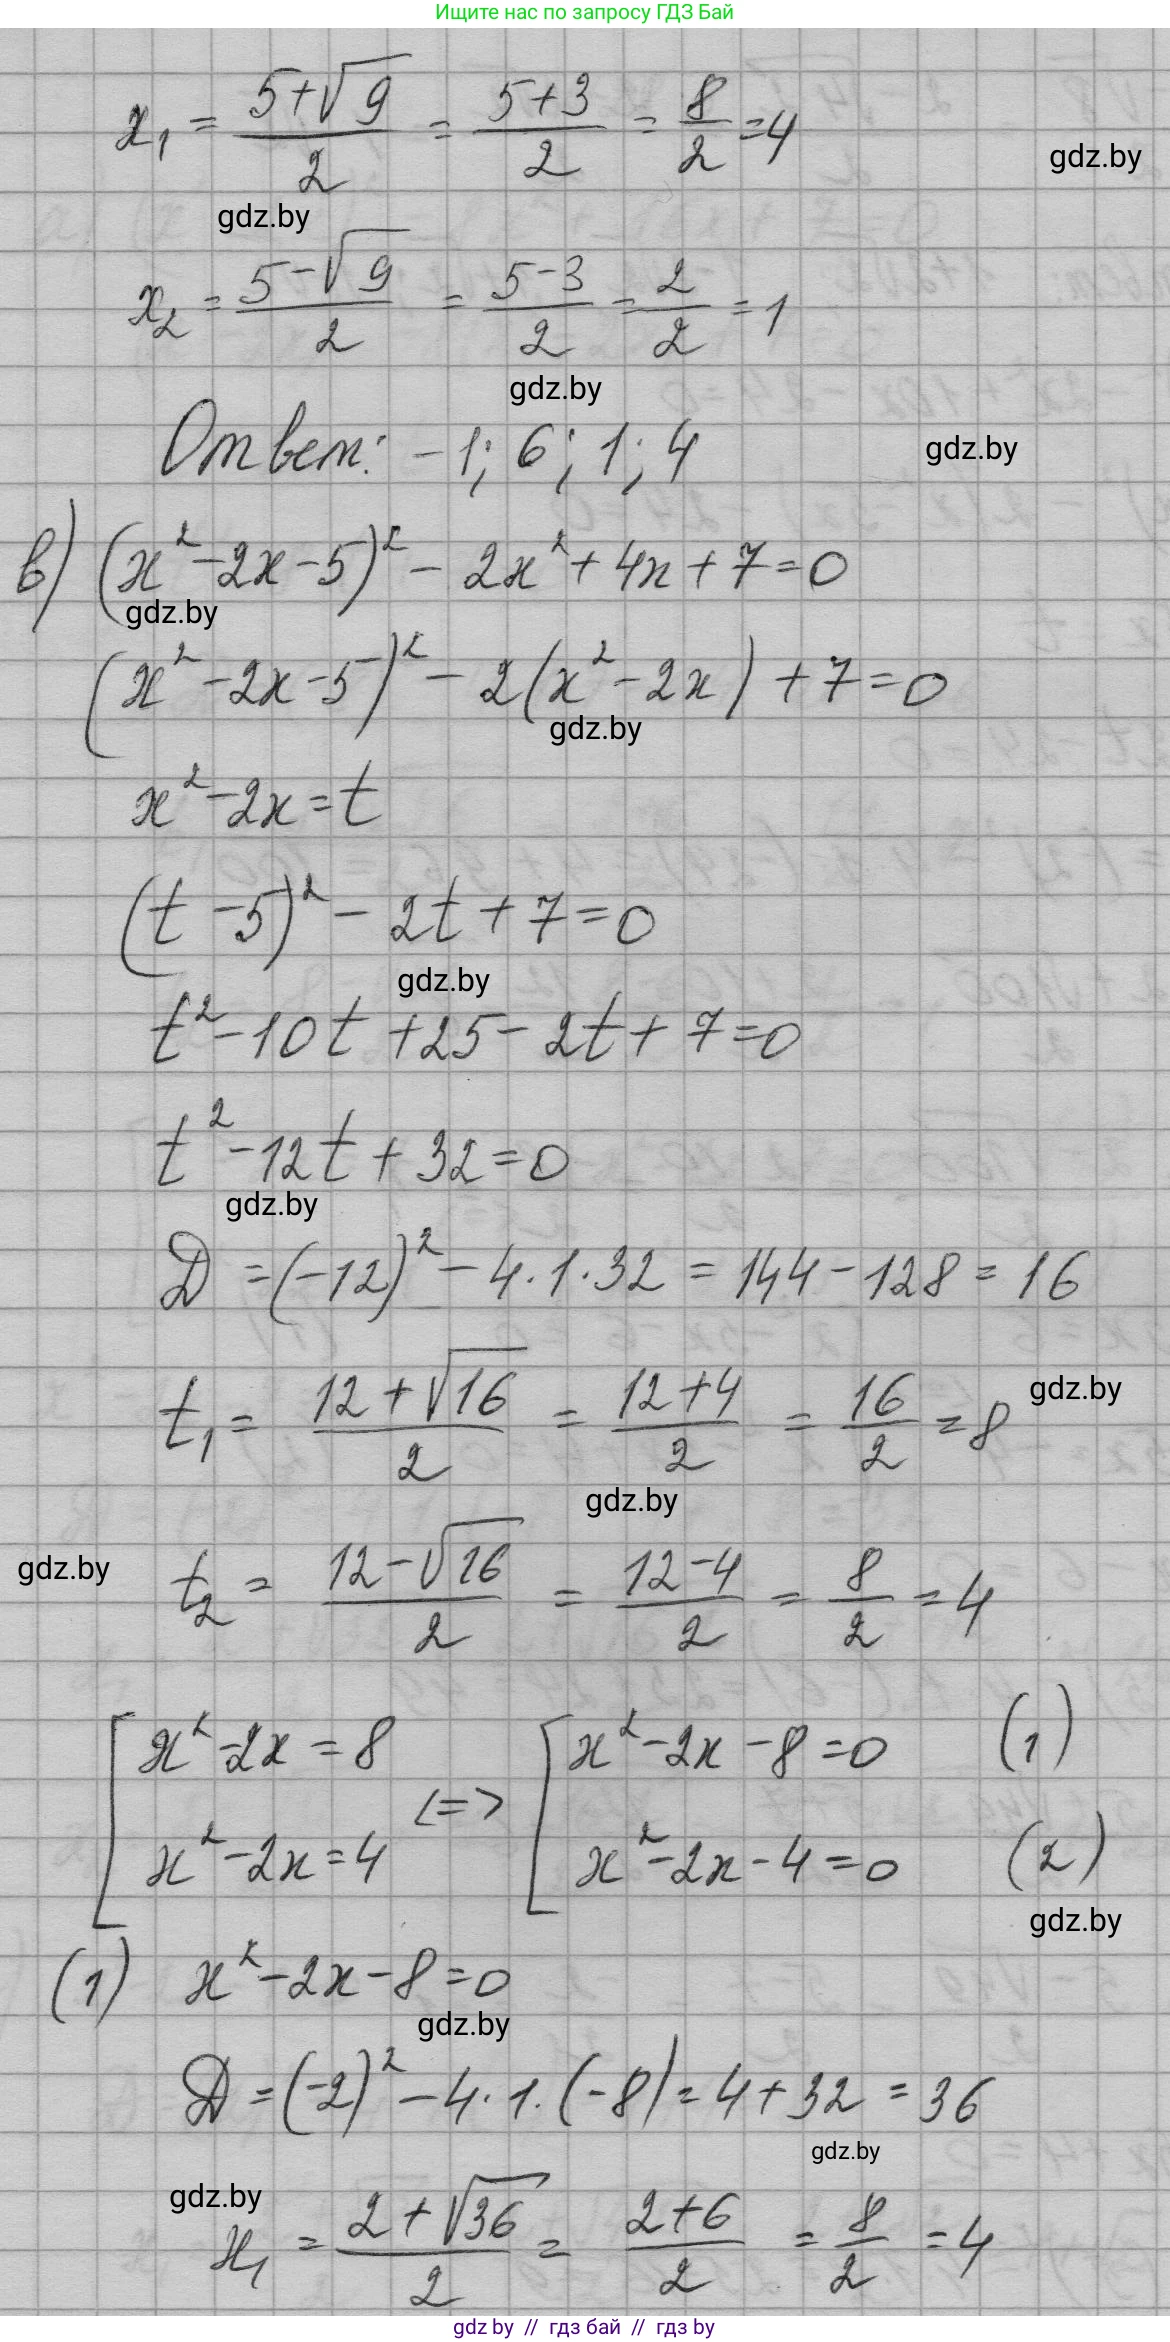 Ищите нас по запросу ГДЗ Бай
x₁ = (5+√9)/2 = (5+3)/2 = 8/2 = 4
gdz.by
gdz.by
x₂ = (5-√9)/2 = (5-3)/2 = 2/2 = 1
gdz.by
Ответ: -1; 6; 1; 4
gdz.by
в) (x²-2x-5)² - 2x² + 4x + 7 = 0
gdz.by
(x²-2x-5)² - 2(x²-2x) + 7 = 0
gdz.by
x²-2x = t
(t-5)² - 2t + 7 = 0
gdz.by
t² - 10t + 25 - 2t + 7 = 0
t² - 12t + 32 = 0
gdz.by
D = (-12)² - 4·1·32 = 144 - 128 = 16
t₁ = (12+√16)/2 = (12+4)/2 = 16/2 = 8
gdz.by
gdz.by
gdz.by
t₂ = (12-√16)/2 = (12-4)/2 = 8/2 = 4
[ x²-2x = 8 <=> [ x²-2x-8 = 0 (1)
x²-2x = 4 x²-2x-4 = 0 (2)
gdz.by
(1) x²-2x-8 = 0
gdz.by
D = (-2)² - 4·1·(-8) = 4 + 32 = 36
gdz.by
gdz.by
x₁ = (2+√36)/2 = (2+6)/2 = 8/2 = 4
gdz by // гдз бай // gdz by